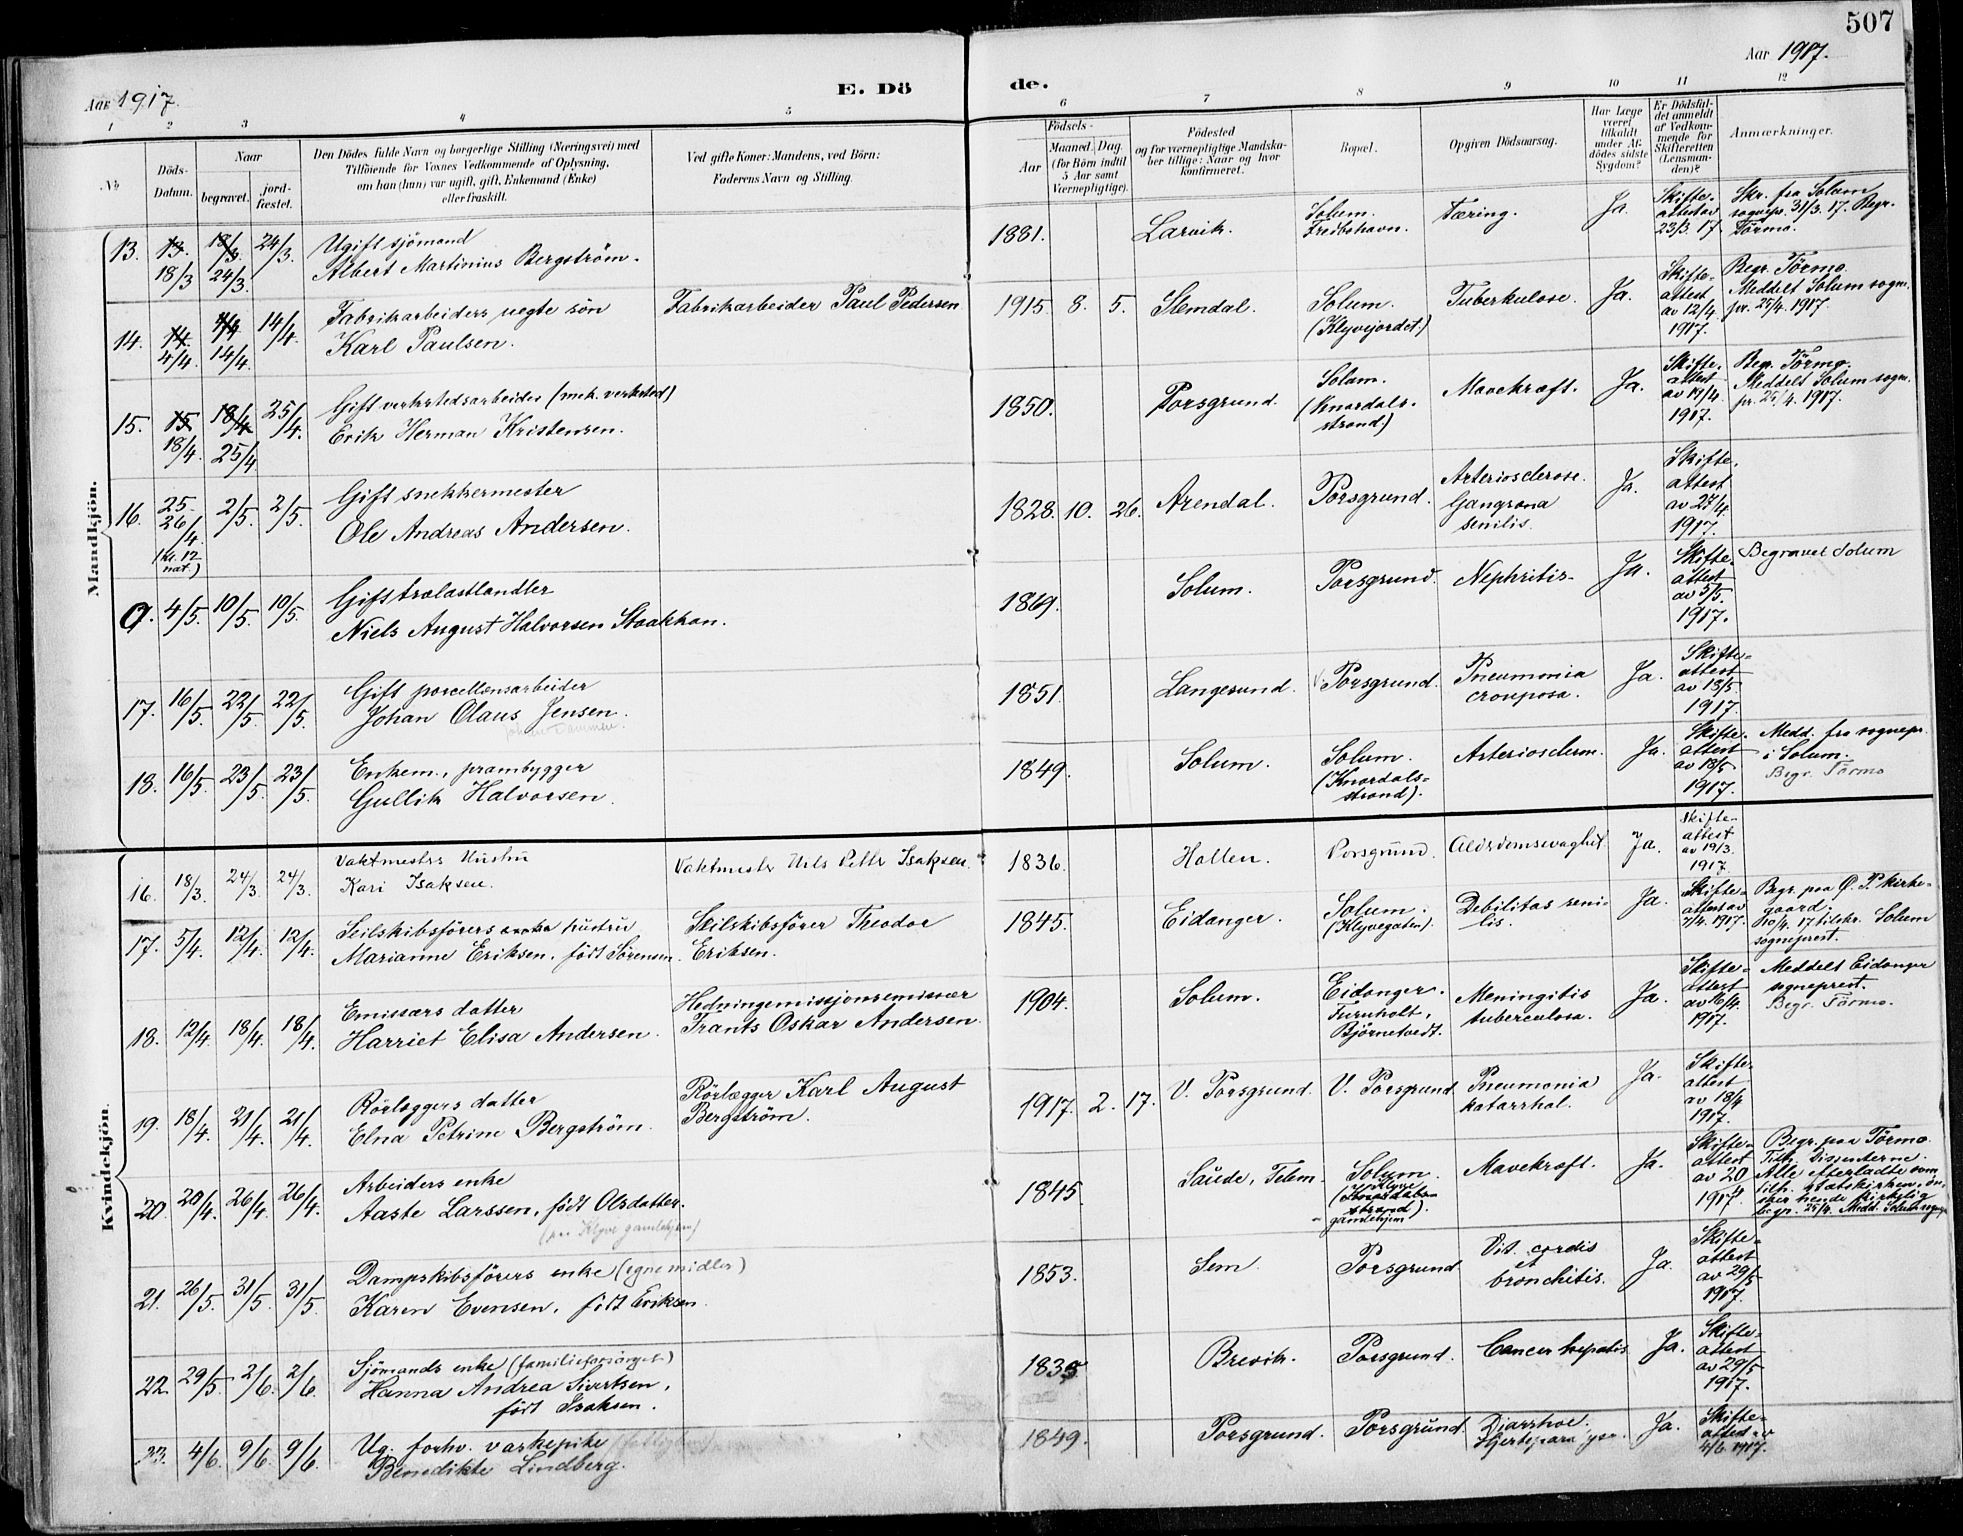 507
Aar 1917.
E. Dö
de.
Aar 1917.
1 2 3 4 5 6 7 8 9 10 11 12
No
Döds-
Datum.
Naar
begravet.
jord-
fæstet.
Den Dödes fulde Navn og borgerlige Stilling (Næringsvei) med
Tilföiende for Voxnes Vedkommende af Oplysning,
om han (hun) var ugift, gift, Enkemand (Enke)
eller fraskilt.
Ved gifte Koner: Mandens, ved Börn:
Faderens Navn og Stilling.
Födsels-
Aar
Maaned. Dag.
(for Börn indtil
5 Aar samt
Værnepligtige).
Födested
og for værnepligtige Mandska-
ber tillige: Naar og hvor
konfirmeret.
Bopæl.
Opgiven Dödsaarsag.
Har Læge
været
tilkaldt
under Af-
dödes sidste
Sygdom?
Er Dödsfal-
det anmeldt
af Vedkom-
mende for
Skifteretten
(Lensman-
den)?
Anmærkninger.
Mandkjön.
13. 13. 18/3 18/3. 24/3. 24/3.
Ugift sjömand
Albert Martinius Bergström.
1881. Larvik.
Solum.
Fredbohavn.
Tæring. Ja.
Skifte-
attest av
23/3. 17
Skr. fra Solum
sognepr. 31/3. 17. Begr.
Törmo.
14. 14. 4/4 4/4 14/4. 14/4.
Fabrikarbeiders uegte sön
Karl Paulsen.
Fabrikarbeider Paul Pedersen
1915. 8. 5. Slemdal.
Solum.
(Klyvejordet.)
Tuberkulose. Ja.
Skifte-
attest
av 12/4.
1917.
Begr. Törmo.
Meddelt Solum sogne-
pr. 25/4. 1917.
15. 15 18/4. 18/4 25/4. 25/4.
Gift verkstedsarbeider (mek. verksted)
Erik Herman Kristensen.
1850. Porsgrund.
Solum.
(Knardals-
strand.)
Mavekræft. Ja.
Skifte-
attest
av 19/4.
1917.
Begr. Törmo.
Meddelt Solum sogne-
pr. 25/4. 1917.
16. 25-26/4 (kl. 12 nat.) 2/5. 2/5.
Gift snekkermester
Ole Andreas Andersen.
1828. 10. 26. Arendal. Porsgrund.
Arteriosclerose.
Gangræna
senilis.
Ja.
Skifte-
attest
av 27/4.
1917.
0. 4/5. 10/5. 10/5.
Gift trælasthandler
Niels August Halvorsen Staakkan.
1869. Solum. Porsgrund. Nephritis. Ja.
Skifte-
attest
av 5/5.
1917.
Begravet Solum
17. 16/5. 22/5. 22/5.
Gift porcellænsarbeider
Johan Olaus Jensen.
1851. Langesund. V. Porsgrund.
Pneumonia
crouposa.
Ja.
Skifte-
attest
av 18/5.
1917.
18. 16/5. 23/5. 23/5.
Enkem., prambygger
Gullik Halvorsen.
1849. Solum.
Solum.
(Knardals-
strand).
Arterioscleros. Ja.
Skifte-
attest
av 18/5
1917.
Medd. fra sognepr.
i Solum.
Begr. Törmo
Kvindekjön.
16. 18/3. 24/3. 24/3.
Vaktmesters Hustru
Kari Isaksen.
Vaktmester Nils Petter Isaksen.
1836. Hollen. Porsgrund. Alderdomssvaghet Ja.
Skifte-
attest
av 19/3.
1917.
17. 5/4. 12/4. 12/4.
Seilskibsförers enke hustru
Marianne Eriksen, född Sörensen.
Seilskibsförer Theodor
Eriksen.
1845. Eidanger.
Solum.
(Klyvegaten).
Debilitas seni-
lis.
Ja.
Skifte-
attest av
7/4. 1917.
Begr. paa Ö. P. kirke-
gaard.
10/4. 17 tilskr. Solum
sogneprest.
18. 12/4. 18/4. 18/4.
Emissærs datter
Harriet Elisa Andersen.
Hedningemissjonsemissær
Frants Oskar Andersen
1904. Solum.
Eidanger.
Furuholt,
Björnetvedt.
Meningitis
tuberculosa.
Ja.
Skifte-
attest
av 16/4.
1917.
Meddelt Eidanger
sogneprest.
Begr. Törmo.
19. 18/4. 21/4. 21/4.
Rörlæggers datter
Elna Petrine Bergström.
Rörlægger Karl August
Bergström.
1917. 2. 17. V. Porsgrund. V. Porsgrund
Pneumonia
katarrhal.
Ja.
Skifte-
attest
av 18/4
1917.
20. 20/4. 26/4. 26/4.
Arbeiders enke
Aaste Larssen, född Olsdatter.
(paa Klyve gamlehjem)
1845. Saude, Telem.
Solum.
Klyve
(Knardals-
strand).
gamlehjem
Mavekræft. Ja.
Skifte-
attest
av 20/4
1917.
Begr. paa Törmo.
Tilh. Dissenterne.
Alle efterladte som
tilh. statskirken, øn-
sker hende kirkelig
begr. 25/4. Medd. Solum sognepr.
21. 26/5. 31/5. 31/5.
Dampskibsförers enke (egne midler)
Karen Evensen, född Eriksen.
1853. Sem. Porsgrund
Vit. cordis
et
bronchitis.
Ja.
Skifte-
attest
av 29/5
1917.
22. 29/5. 2/6. 2/6.
Sjömands enke (familieforsörget)
Hanna Andrea Sivertsen,
född Isaksen.
1835 Brevik. Porsgrund. Cancer hepatis. Ja.
Skifte-
attest
av 29/5
1917.
23. 4/6. 9/6. 9/6.
Ug. forhv. vaskepike
Benedikte Lindberg.
1849. Porsgrund. Porsgrund
Diarrhoe.
Ja.
Skifte-
attest av
4/6. 1917.